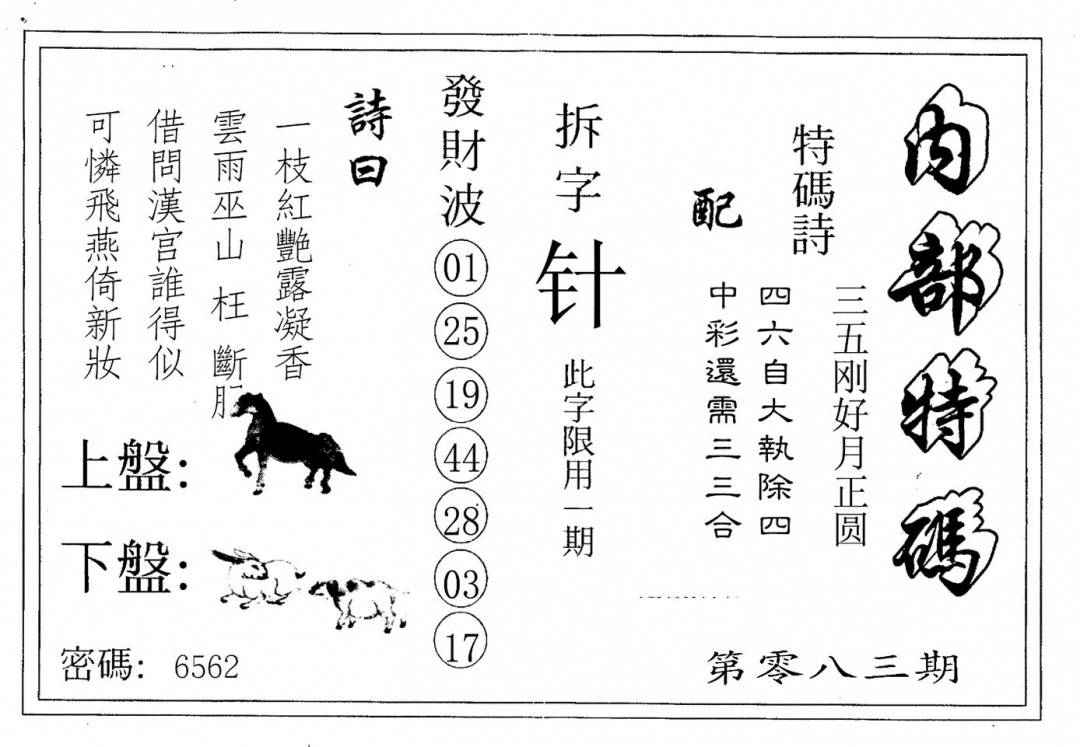 内部特碼
特碼詩
三五刚好月正圆
配
四六自大執除四
中彩還需三三合
第零八三期
拆字
针
此字限用一期
發財波
01
25
19
44
28
03
17
詩曰
一枝紅艷露凝香
雲雨巫山枉斷
借問漢宮誰得似
可憐飛燕倚新妝
上盤：
下盤：
密碼： 6562